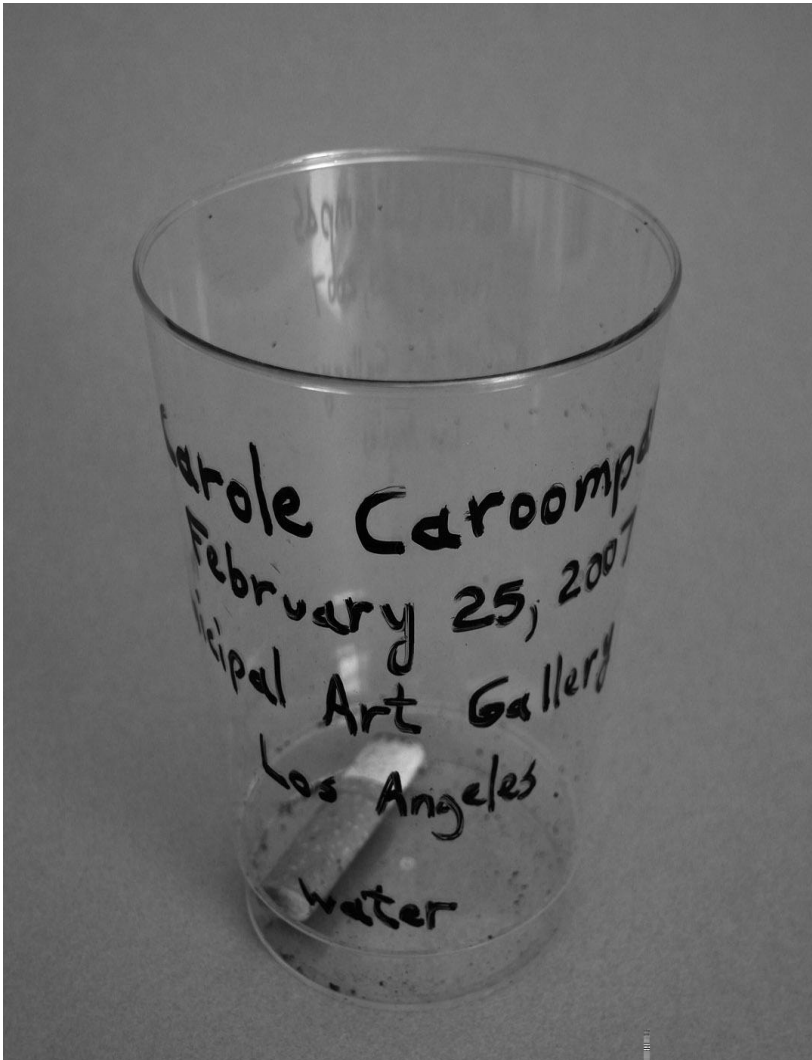 Carole Caroompas
February 25, 2007
Municipal Art Gallery
Los Angeles
water